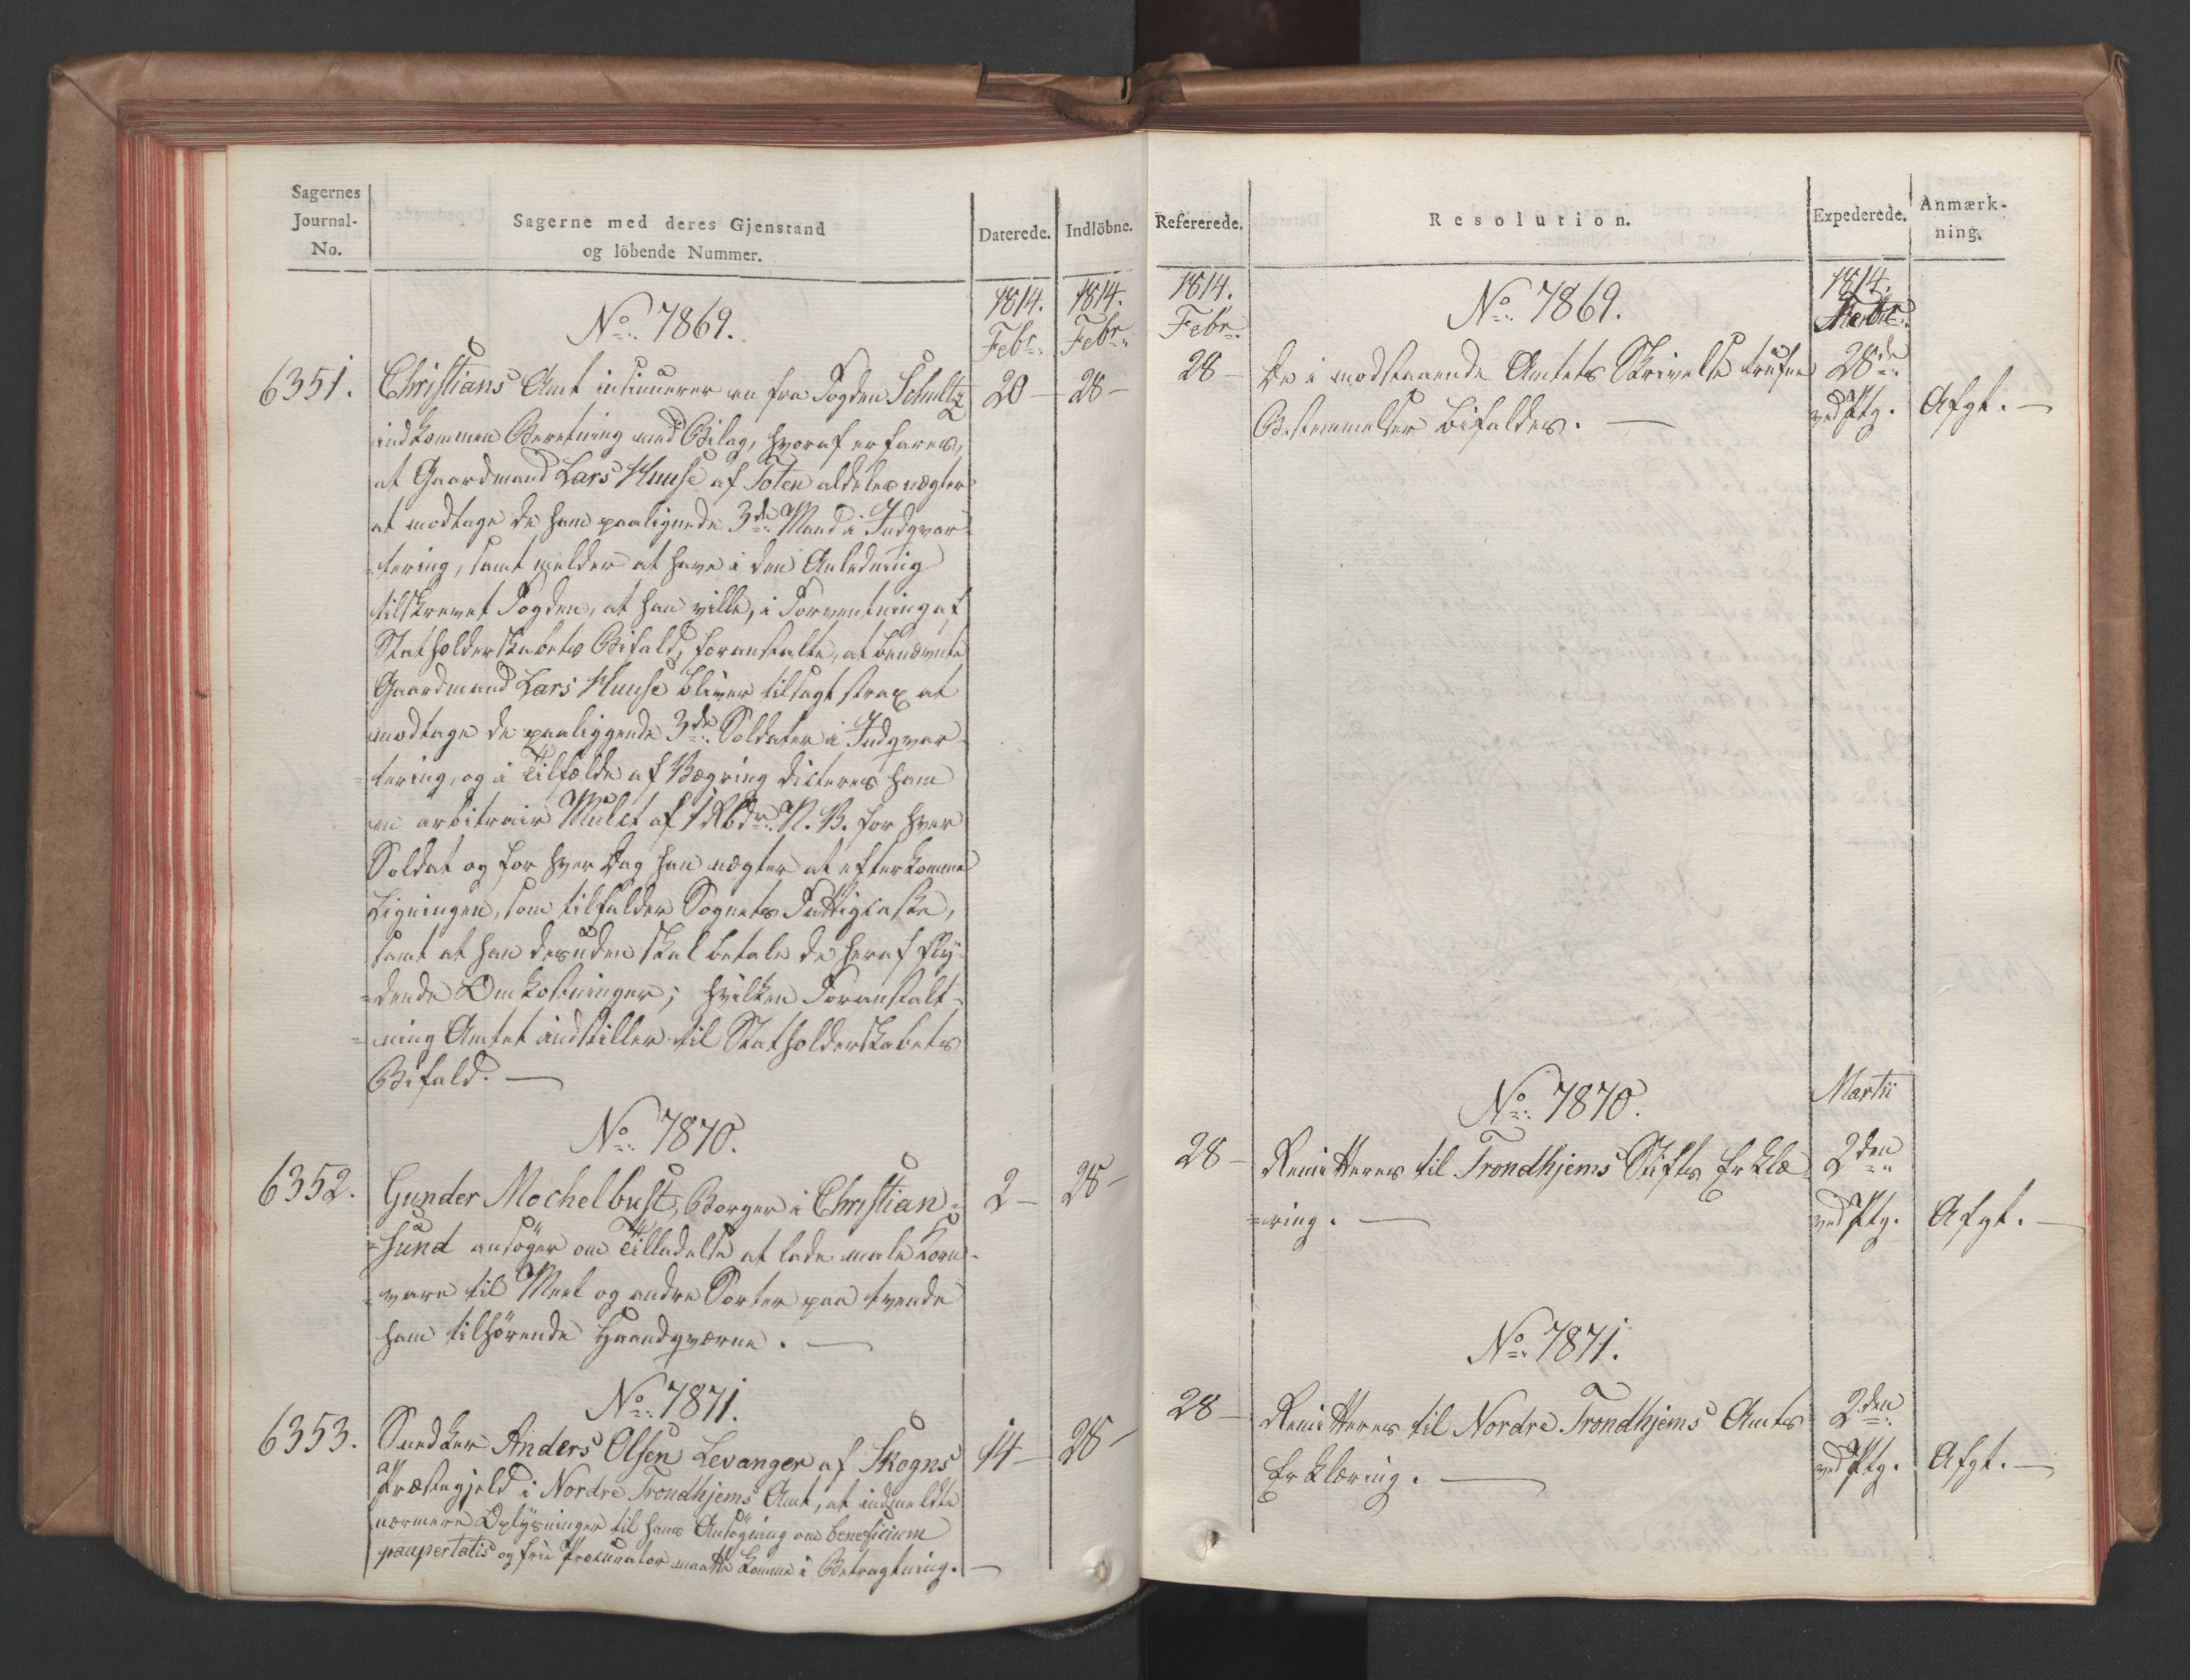 Sagernes
Journal-
No.
Sagerne med deres Gjenstand
og löbende Nummer.
Daterede.
Indlöbne.
1814.
Febr.
1814.
Febr.
No. 7869.
6351.
Christians Amt insinuerer en fra Fogden Schultz
20 —
28 —
indkommen Beretning med Bilag, hvoraf erfares,
at Gaardmand Lars Huuse af Toten aldeles nægter
at modtage de ham paalignede 3de Mand i Indqvar-
=tering, samt melder at have i den Anledning
tilskrevet Fogden, at han ville, i Forventning af
Statholderskabets Bifald, foranstalte, at benævnte
Gaardmand Lars Huuse bliver tilsagt strax at
modtage de paaliggende 3de Soldater i Indqvar-
=tering, og i Tilfælde af Vægring dicteres ham
en arbitrair Mulct af 1 Rbdr. N. V. for hver
Soldat og for hver Dag han nægter at efterkomme
Ligningen, som tilfalder Sognets Fattigkasse,
samt at han desuden skal betale de heraf fly-
=dende Omkostninger; hvilken Foranstalt-
=ning Amtet indstiller til Statholderskabets
Bifald. —
No. 7870.
6352.
Gunder Mochelbust, Borger i Christian=
2 —
28 —
=sund ansöger om Tilladelse at lade male Korn-
=vare til Meel og andre Sorter paa tvende
ham tilhörende Haandqværne. —
No. 7871.
6353.
Snedker Anders Olsen Levanger af Skogns
14 —
28 —
Præstegjeld i Nordre Trondhjems Amt, at indmeldte
nærmere Oplysninger til hans Ansögning om beneficium
paupertatis og frie Procurator maatte komme i Betragtning. —
Refererede.
Resolution.
Expederede.
Anmærk-
ning.
1814.
Febr.
1814.
No. 7869.
28 —
De i modstaaende Amtets Skrivelse trufne
28de
Bestemmelser bifaldes. —
ved Ptg.
Afgt. —
No. 7870.
Martii
28 —
Remitteres til Trondhjems Stifts Erklæ-
2den
=ring. —
ved Ptg.
Afgt. —
No. 7871.
28 —
Remitteres til Nordre Trondhjems Amts
2den
Erklæring. —
ved Ptg.
Afgt. —